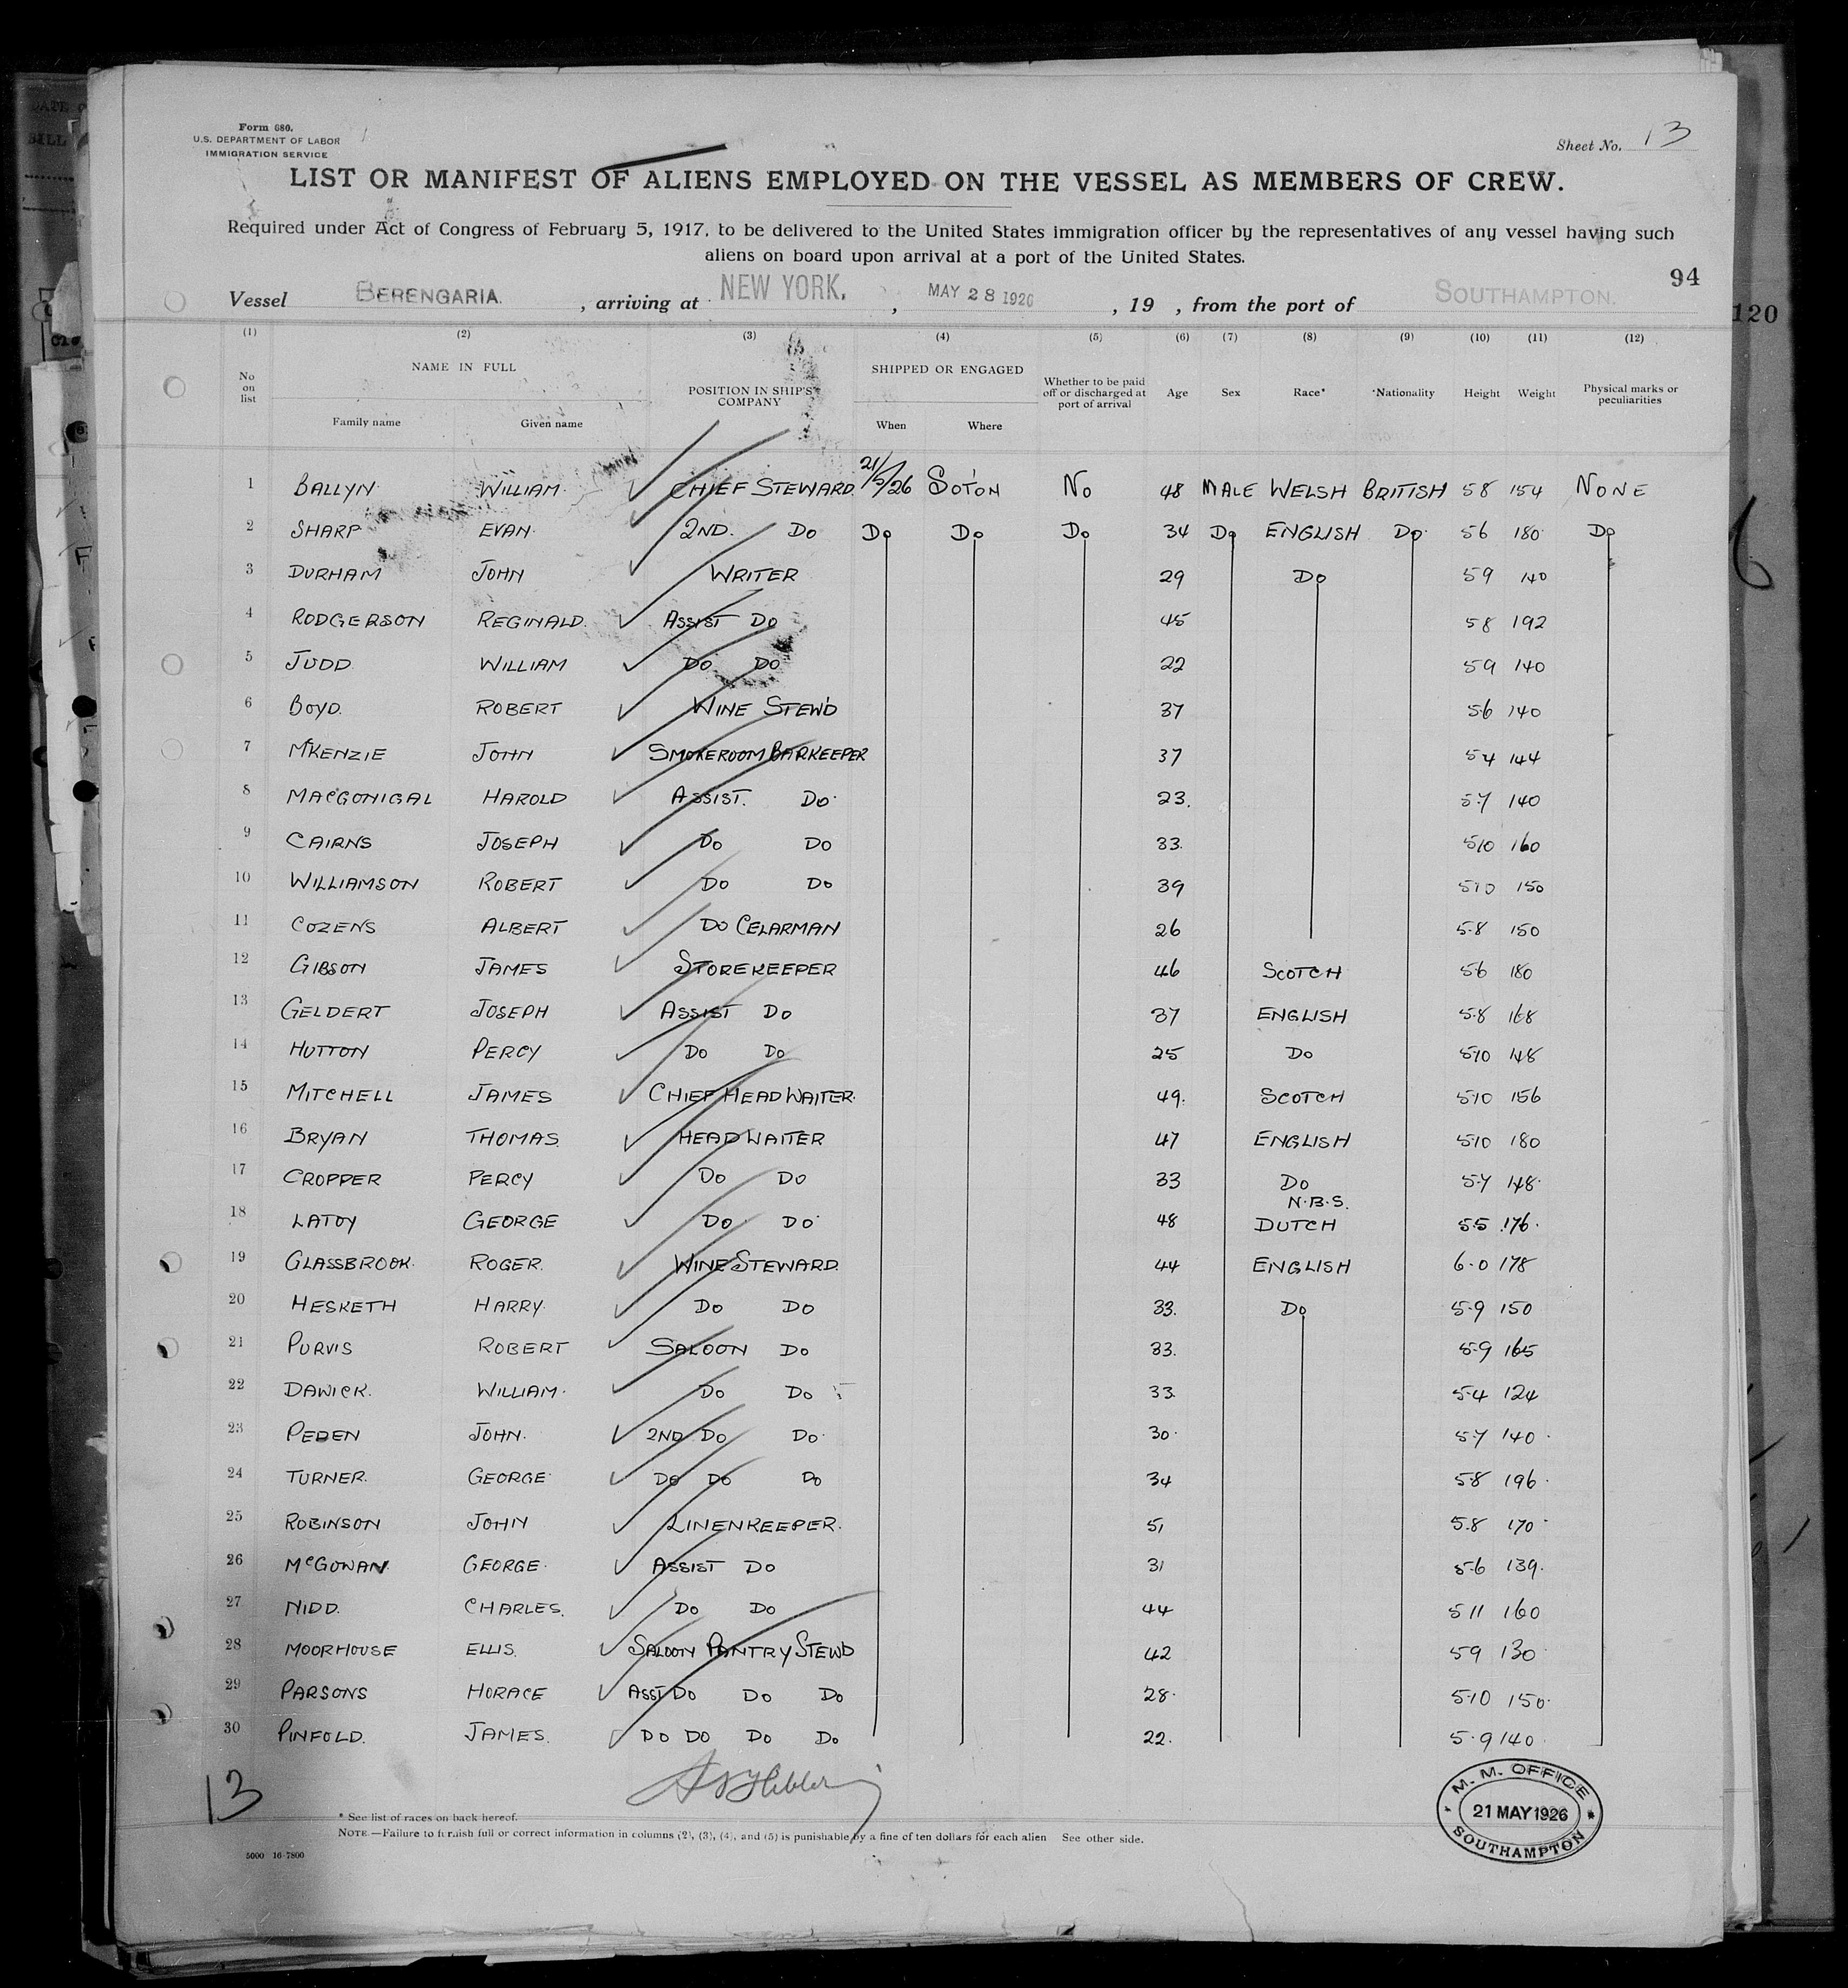 Form 680.
U.S. DEPARTMENT OF LABOR
IMMIGRATION SERVICE
Sheet No. 13
LIST OR MANIFEST OF ALIENS EMPLOYED ON THE VESSEL AS MEMBERS OF CREW.
Required under Act of Congress of February 5, 1917, to be delivered to the United States immigration officer by the representatives of any vessel having such
aliens on board upon arrival at a port of the United States.
94
120
Vessel BERENGARIA. , arriving at NEW YORK. , MAY 28 1926 , 19 , from the port of SOUTHAMPTON.
(1) (2) (3) (4) (5) (6) (7) (8) (9) (10) (11) (12)
No on list NAME IN FULL Family name Given name POSITION IN SHIP'S COMPANY SHIPPED OR ENGAGED When Where Whether to be paid off or discharged at port of arrival Age Sex Race* Nationality Height Weight Physical marks or peculiarities
1 BALLYN WILLIAM CHIEF STEWARD 21/5/26 SOTON NO 48 MALE WELSH BRITISH 5 8 154 NONE
2 SHARP EVAN 2ND. DO DO DO DO 34 DO ENGLISH DO 5 6 180 DO
3 DURHAM JOHN WRITER 29 DO 5 9 140
4 RODGERSON REGINALD. ASSIST DO 45 5 8 192
5 JUDD WILLIAM DO DO 22 5 9 140
6 BOYD. ROBERT WINE STEW'D 37 5.6 140
7 McKENZIE JOHN SMOKEROOM BARKEEPER 37 5 4 144
8 MACGONIGAL HAROLD ASSIST. DO 23. 5.7 140
9 CAIRNS JOSEPH DO DO 33. 5 10 160
10 WILLIAMSON ROBERT DO DO 39 5 10 150
11 COZENS ALBERT DO CELARMAN 26 5.8 150
12 GIBSON JAMES STOREKEEPER 46 SCOTCH 5 6 180
13 GELDERT JOSEPH ASSIST DO 37 ENGLISH 5.8 168
14 HUTTON PERCY DO DO 25 DO 5 10 148
15 MITCHELL JAMES CHIEF HEAD WAITER. 49. SCOTCH 5 10 156
16 BRYAN THOMAS. HEAD WAITER 47 ENGLISH 5 10 180
17 CROPPER PERCY DO DO 33 DO 5.7 148.
N.B.S.
18 LATOY GEORGE DO DO 48 DUTCH 5.5 176.
19 GLASSBROOK. ROGER. WINE STEWARD. 44 ENGLISH 6.0 178
20 HESKETH HARRY. DO DO 33. DO 5.9 150
21 PURVIS ROBERT SALOON DO 33. 5.9 165
22 DAWICK. WILLIAM. DO DO 33. 5.4 124
23 PEDEN JOHN. 2ND DO DO 30. 5.7 140.
24 TURNER. GEORGE DO DO DO 34 5.8 196.
25 ROBINSON JOHN LINENKEEPER. 51 5.8 170
26 McGOWAN. GEORGE. ASSIST DO 31 5.6 139.
27 NIDD. CHARLES. DO DO 44 5 11 160
28 MOORHOUSE ELLIS. SALOON PANTRY STEWD 42 5 9 130
29 PARSONS HORACE ASST DO DO DO 28. 5.10 150.
30 PINFOLD. JAMES. DO DO DO DO 22. 5.9 140.
13
M. M. OFFICE
21 MAY 1926
SOUTHAMPTON
* See list of races on back hereof.
NOTE.—Failure to furnish full or correct information in columns (2), (3), (4), and (5) is punishable by a fine of ten dollars for each alien See other side.
5000 16-7800